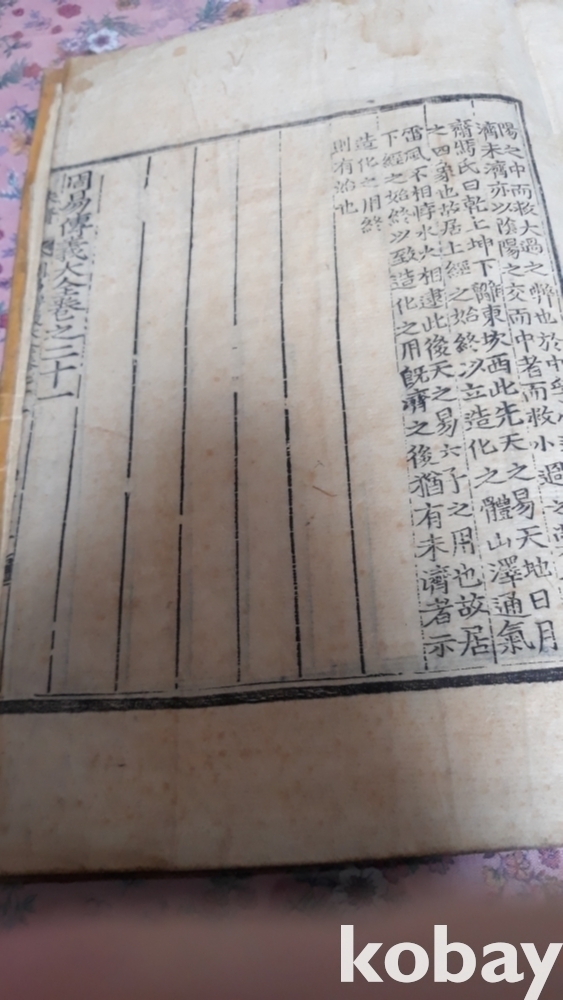 陽之中而救大過之弊也於中
濟未濟亦以陰陽之交而中者而救小過之
齋馮氏曰乾上坤下離東坎西此先天之易天地日月
之四象也故居上經之始終以立造化之體山澤通氣
雷風不相悖水火相逮此後天之易六子之用也故居
下經之始終以致造化之用旣濟之後猶有未濟者示
造化之用終
則有治也
周易傳義大全卷之二十一
kobay